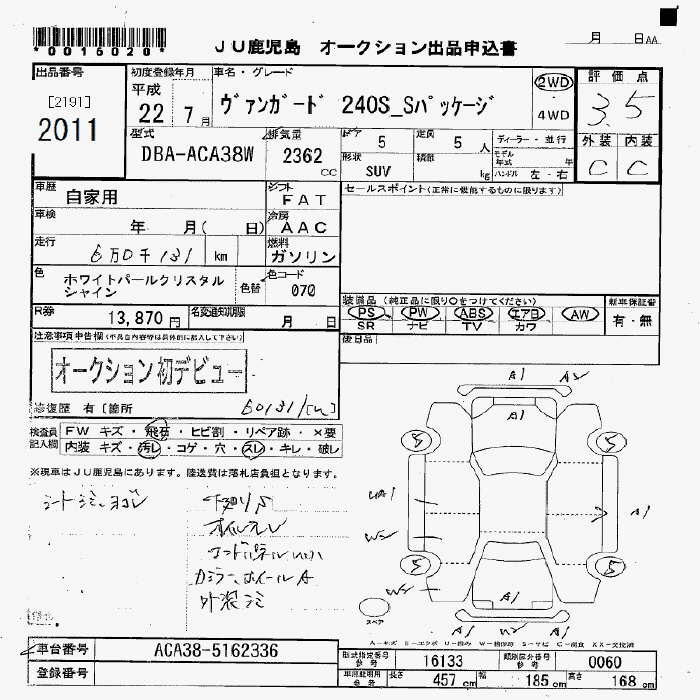 *0016020*
JU鹿児島 オークション出品申込書
月 日AA
出品番号
[2191]
2011
初度登録年月
平成
22年7月
車名・グレード
ヴァンガード 240S_Sパッケージ
2WD
・
4WD
評価点
3.5
外装 内装
C C
型式
DBA-ACA38W
排気量
2362
cc
ドア
5
定員
5人
形状
SUV
積載
kg
ディーラー・並行
モデル年式 年
ハンドル 左・右
車歴
自家用
シフト
FAT
セールスポイント(正常に機能するものに限ります)
車検
年 月( 日)
冷房
AAC
走行
6万0千131 km
燃料
ガソリン
色
ホワイトパールクリスタル
シャイン
色替
色コード
070
R券
13,870円
名変通知期限
月 日
装備品(純正品に限り○をつけてください)
PS PW ABS エアB AW
SR ナビ TV カワ
新車保証書
有・無
後日品
注意事項申告欄(不具合内容等は具体的に記入して下さい)
オークション初デビュー
修復歴 有〔箇所
60131/
検査員
記入欄
FW キズ・飛石・ヒビ割・リペア跡・×要
内装 キズ・汚レ・コゲ・穴・スレ・キレ・破レ
※現車はJU鹿児島にあります。陸送費は落札店負担となります。
シート シミ、ヨゴレ
下廻りS
オイルモレ
カラーホイールA
A1 A2
A1
5 5
UA1
W2
5 5
W2
A1
A1 W2 A1
スペア
車台番号
ACA38-5162336
登録番号
型式指定番号
参考
16133
類別区分番号
参考
0060
車両証明用
参考
長さ 457cm
幅 185cm
高さ 168cm